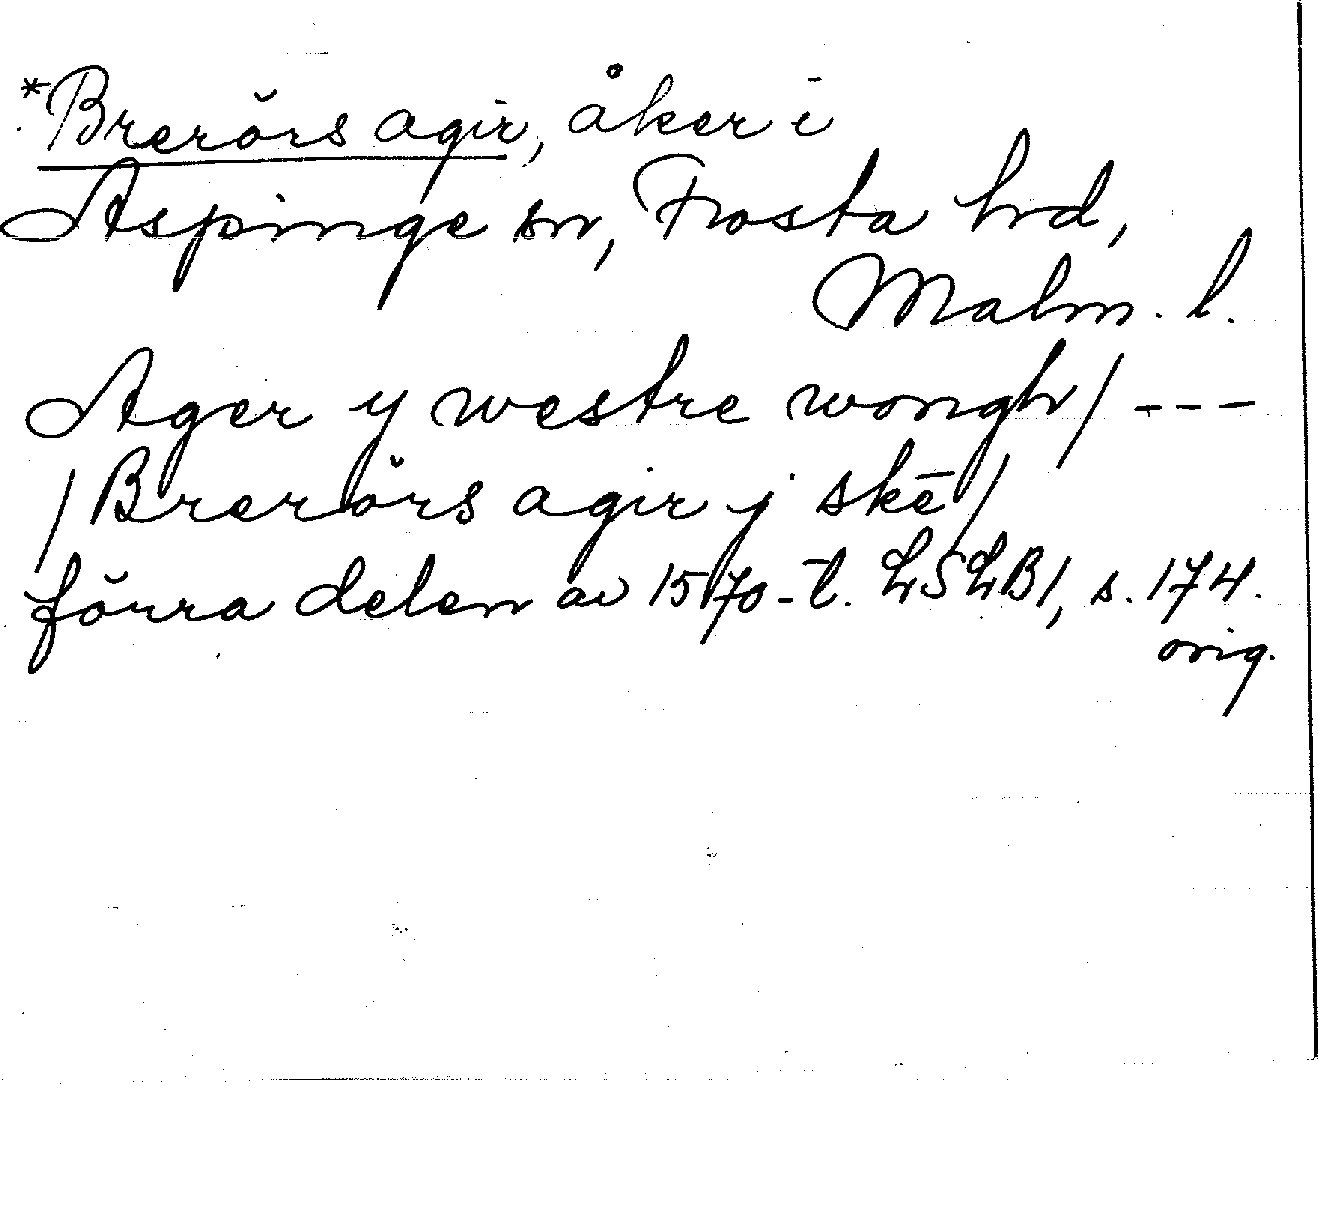 *Brerörs agir, åker i
Aspinge sn, Frosta hrd,
Malm. l.
Ager y westre wongh/ ---
/Brerörs agir j skē/
förra delen av 1570-t. LSLB1, s. 174.
orig.